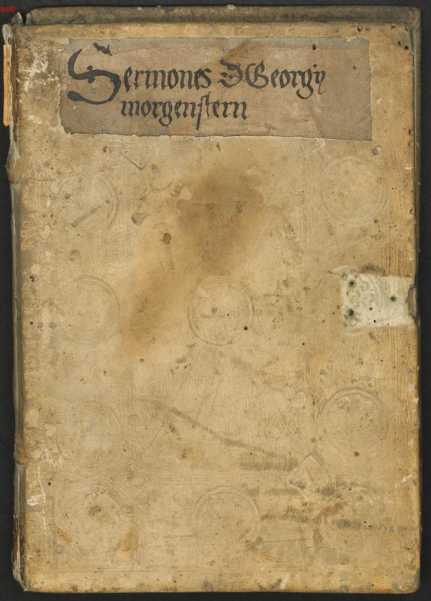 Sermones D Georgÿ
morgenſtern